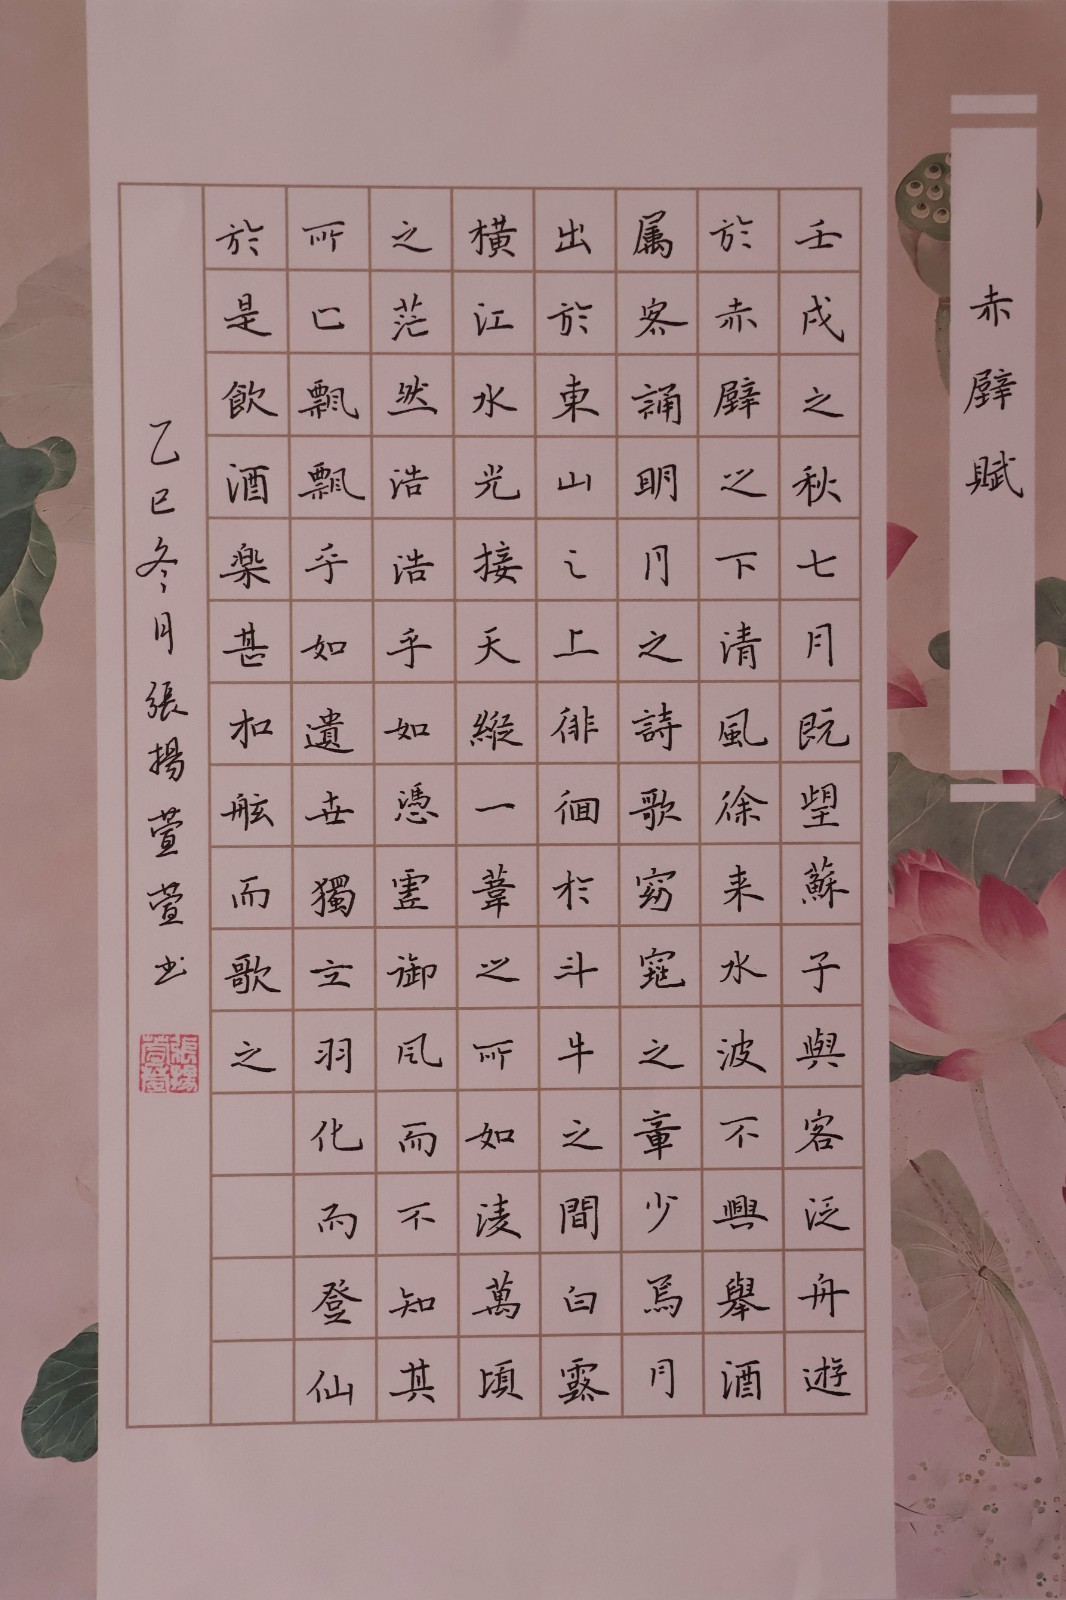 赤壁賦
壬戌之秋七月既望蘇子與客泛舟遊
於赤壁之下清風徐来水波不興舉酒
属客誦明月之詩歌窈窕之章少焉月
出於東山之上徘徊於斗牛之間白露
橫江水光接天縱一葦之所如淩萬頃
之茫然浩浩乎如憑霊御风而不知其
所已飘飘乎如遺世獨立羽化而登仙
於是飲酒楽甚扣舷而歌之
乙巳冬月張揚萱萱书
張揚萱萱